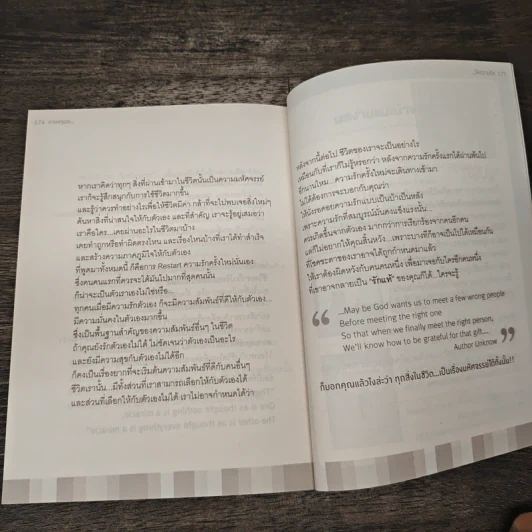 174
หากเราคิดว่าทุกๆ สิ่งที่ผ่านเข้ามาในชีวิตนั้นเป็นความมหัศจรรย์
เราก็จะรู้สึกสนุกกับการใช้ชีวิตมากขึ้น
และรู้ว่าควรทำอย่างไรเพื่อให้ชีวิตมีค่า กล้าที่จะไปพบเจอสิ่งใหม่ๆ
ค้นหาสิ่งที่น่าสนใจให้กับตัวเอง และที่สำคัญ เราจะรู้อยู่เสมอว่า
เราคือใคร...เคยผ่านอะไรในชีวิตมาบ้าง
เคยทำถูกหรือทำผิดตรงไหน และเรื่องไหนบ้างที่เราได้ทำสำเร็จ
และสร้างความภาคภูมิใจให้กับตัวเอง
ที่พูดมาทั้งหมดนี้ ก็คือการ Restart ความรักครั้งใหม่นั่นเอง
ซึ่งคนคนแรกที่ควรจะได้มันไปมากที่สุดคนนั้น
ก็น่าจะเป็นตัวเราเองไม่ใช่หรือ...
ทุกคนเมื่อมีความรักตัวเอง ก็จะมีความสัมพันธ์ที่ดีให้กับตัวเอง...
มีความมั่นคงในตัวเองมากขึ้น
ซึ่งเป็นพื้นฐานสำคัญของความสัมพันธ์อื่นๆ ในชีวิต
ถ้าคุณยังรักตัวเองไม่ได้ ไม่ชัดเจนว่าตัวเองเป็นอะไร
และยังมีความสุขกับตัวเองไม่ได้อีก
ก็คงเป็นเรื่องยากที่จะเริ่มต้นความสัมพันธ์ที่ดีกับคนอื่นๆ
ชีวิตเรานั้น...มีทั้งส่วนที่เราสามารถเลือกให้กับตัวเองได้
และส่วนที่เลือกให้กับตัวเองไม่ได้ เราไม่อาจกำหนดได้ว่า
หลังจากนี้ต่อไป ชีวิตของเราจะเป็นอย่างไร
เหมือนกับที่เราก็ไม่รู้หรอกว่า หลังจากความรักครั้งแรกได้ผ่านพ้นไป
อีกนานไหม...ความรักครั้งใหม่จะเดินทางเข้ามา
ไม่ได้ต้องการจะบอกกับคุณว่า
ให้นั่งรอคอยความรักแบบเป็นบ้าเป็นหลัง
เพราะความรักที่สมบูรณ์มั่นคงแข็งแรงนั้น...
ควรเกิดขึ้นจากตัวเอง มากกว่าการเรียกร้องจากคนอีกคน
แต่ก็ไม่อยากให้คุณสิ้นหวัง...เพราะบางทีก็อาจเป็นไปได้เหมือนกัน
ที่โชคชะตาของเราอาจได้ถูกกำหนดมาแล้ว
ให้เราต้องผิดหวังกับคนคนหนึ่ง เพื่อมาเจอกับใครอีกคนหนึ่ง
ที่เขาอาจกลายเป็น 'รักแท้' ของคุณก็ได้...ใครจะรู้
"...May be God wants us to meet a few wrong people
Before meeting the right one
So that when we finally meet the right person,
We'll know how to be grateful for that gift....."
Author Unknow
ก็บอกคุณแล้วไงล่ะว่า ทุกสิ่งในชีวิต...เป็นเรื่องมหัศจรรย์ได้ทั้งนั้น!!